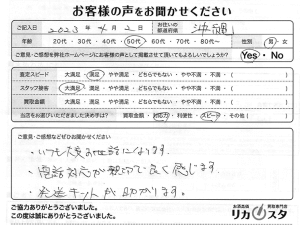 お客様の声をお聞かせください
ご記入日 2023年4月2日 お住いの都道府県 沖縄
年齢 20代・30代・40代・50代・60代・70代・80代〜 性別 男・女
ご意見・ご感想を弊社ホームページにお客様の声として掲載させて頂いてもよろしいでしょうか? Yes・No
査定スピード 大満足・満足・やや満足・どちらでもない・やや不満・不満・( )
スタッフ接客 大満足・満足・やや満足・どちらでもない・やや不満・不満・( )
買取金額 大満足・満足・やや満足・どちらでもない・やや不満・不満・( )
当店をお選びいただきました決め手は? 買取金額・対応力・利便性・スピード・その他( )
ご意見・ご感想などぜひお聞かせください
・いつも大変お世話になります。
・電話対応が親切で良く感じます。
・発送キットが助かります。
ご協力ありがとうございました。
この度は誠にありがとうございました。
お酒高価買取専門店
リカスタ